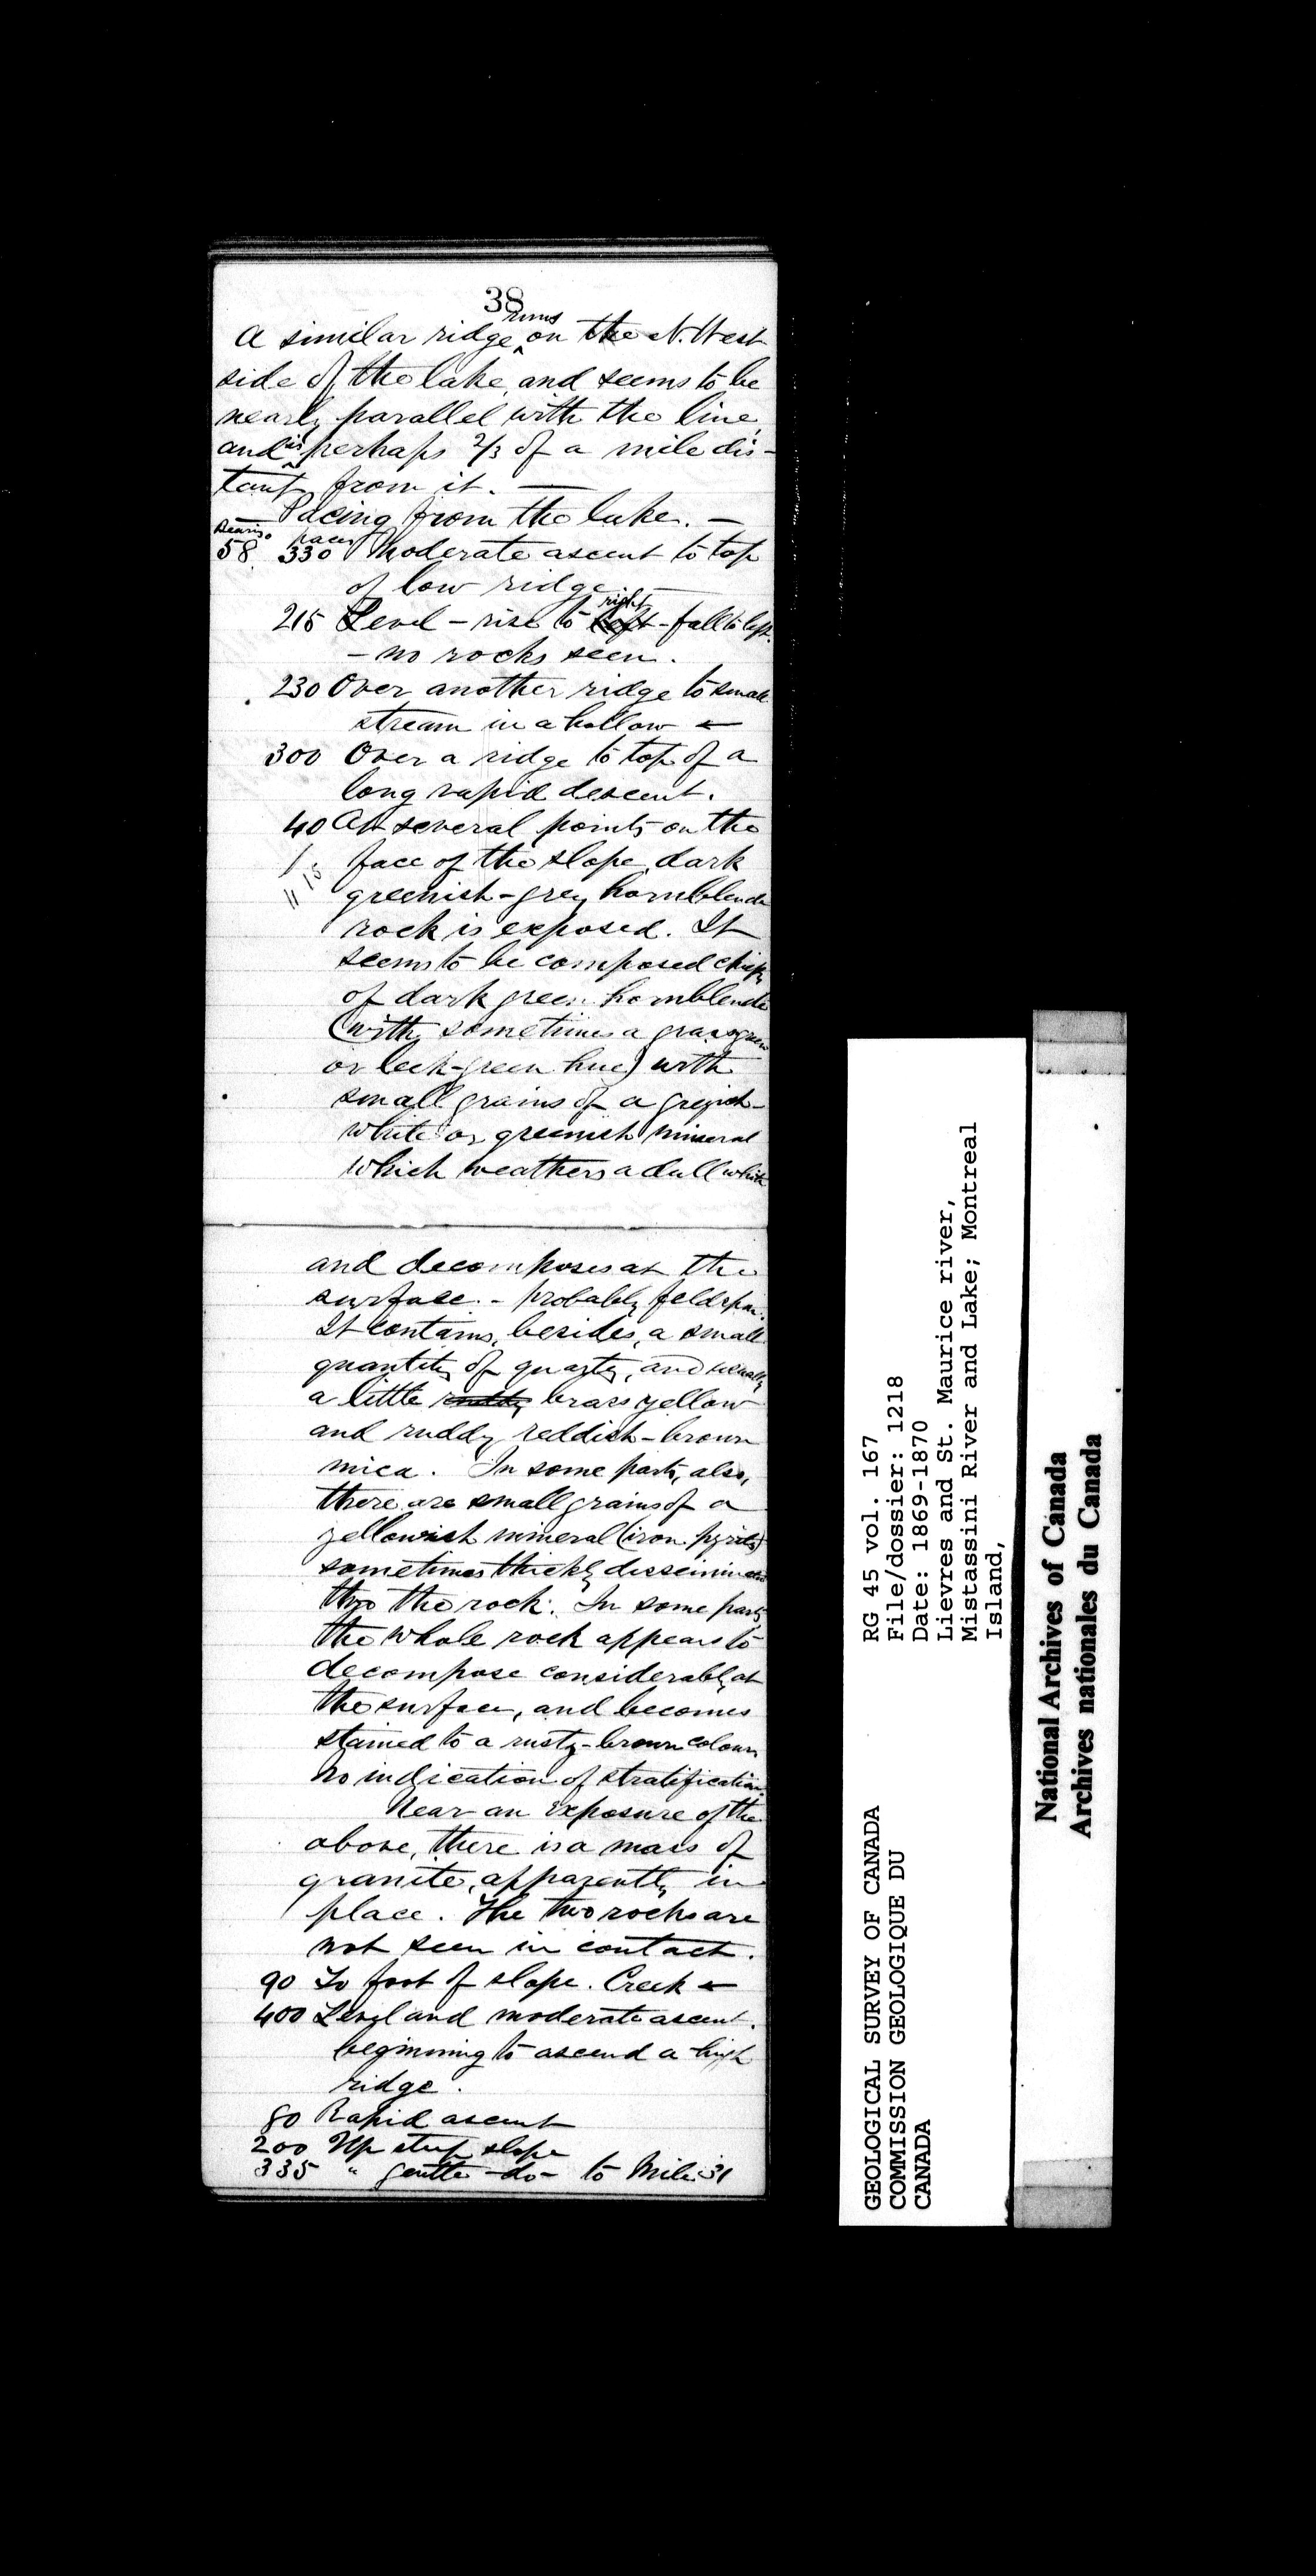 38
A similar ridge runs on the N. West
side of the lake, and seems to be
nearly parallel with the line,
and is perhaps 2/3 of a mile dis-
tant from it. —
— Pacing from the lake. —
Bearing paces
58 330 Moderate ascent to top
of low ridge
215 Level - rise to left right - fall to left.
- no rocks seen.
230 Over another ridge to small
stream in a hollow ←
300 Over a ridge to top of a
long rapid descent.
40 At several points on the
face of the slope, dark
greenish-grey hornblende
rock is exposed. It
seems to be composed chiefly
of dark green hornblende
(with sometimes a grass green
or leek-green hue) with
small grains of a greyish-
white or greenish mineral
which weathers a dull white
and decomposes at the
surface. - probably feldspar.
It contains, besides, a small
quantity of quartz, and usually
a little ruddy brass yellow
and ruddy reddish-brown
mica. In some parts, also,
there are small grains of a
yellowish mineral (iron pyrites)
sometimes thickly disseminated
thro the rock. In some parts
the whole rock appears to
decompose considerably at
the surface, and becomes
stained to a rusty-brown colour
No indication of stratification.
Near an exposure of the
above, there is a mass of
granite, apparently in
place. The two rocks are
not seen in contact.
90 To foot of slope. Creek ←
400 Level and moderate ascent.
beginning to ascend a high
ridge.
80 Rapid ascent
200 Up steep slope
335 " gentle -do- to Mile 31
GEOLOGICAL SURVEY OF CANADA
COMMISSION GEOLOGIQUE DU
CANADA
RG 45 vol. 167
File/dossier: 1218
Date: 1869-1870
Lievres and St. Maurice river,
Mistassini River and Lake; Montreal
Island,
National Archives of Canada
Archives nationales du Canada